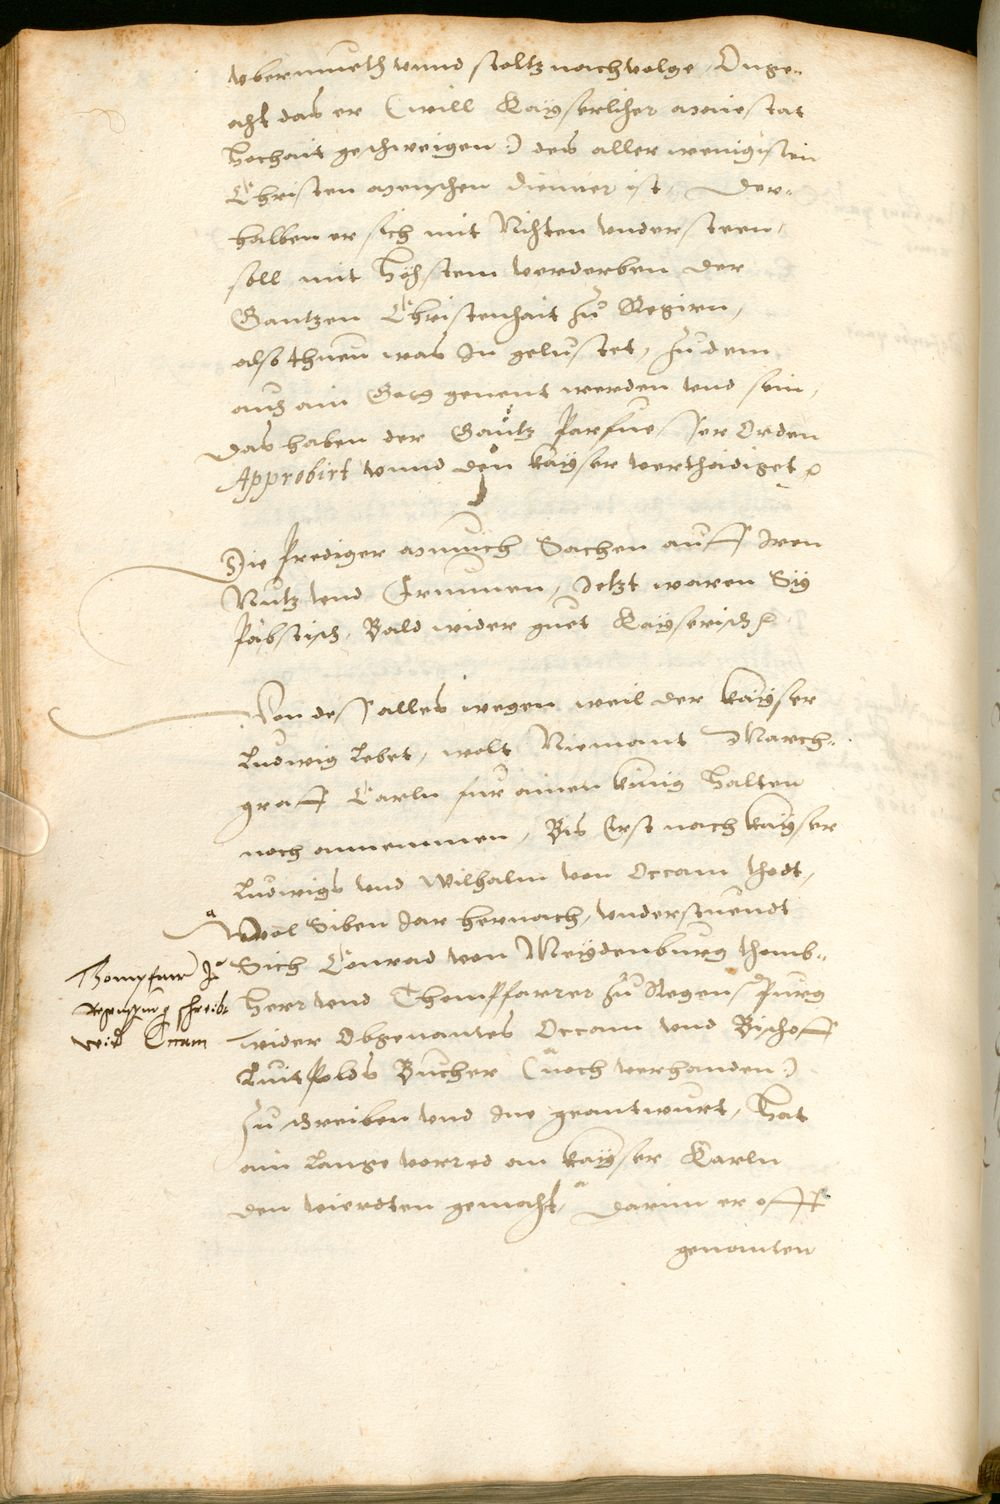 vbermueth vnnd stoltz nachvolge, Unge-
acht das er (will Kayserlicher Maiestat
Hochait geschweigen:) des aller wenigisten
Christen menschen diener ist, Der-
halben er sich mit Nichten vndersteen,
soll mit höchstem verderben der
Gantzen Christenhait zů Regirn,
also thuen was In gelustet, zu dem
auch ain Gott genent werden vnd sein,
Das haben der Gantz Parfuesser Orden
Approbirt vnnd den kayser verthaidiget
Die Prediger Münich Sachen auff Iren
Nutz vnd Frummen, Ietzt waren Sy
Päbstisch, Bald wider guet Kayserisch
Von dess alles wegen weil der kayser
Ludwig Lebet, wolt Niemant March-
graff Carln für ainen künig Halten
noch annemmen, Bis Erst nach kayser
Ludwigs vnd Wilhalm von Occam thodt,
Wol Siben Jar hernach, vnderstuendt
Sich Conrad von Meydenburg thomb-
Herr vnd Thompfarrer zů Regenspurg
wider Obgenantes Occam vnd Bischoff
Luitpolds Bücher (noch verhanden:)
zu schreiben vnd Ine geantwurt, Hat
ain Lange vorred an kayser Karln
den vierdten gemacht, Darinn er offt
genanten
Thompfarr zů
Regenspurg schreibt
wid Occam